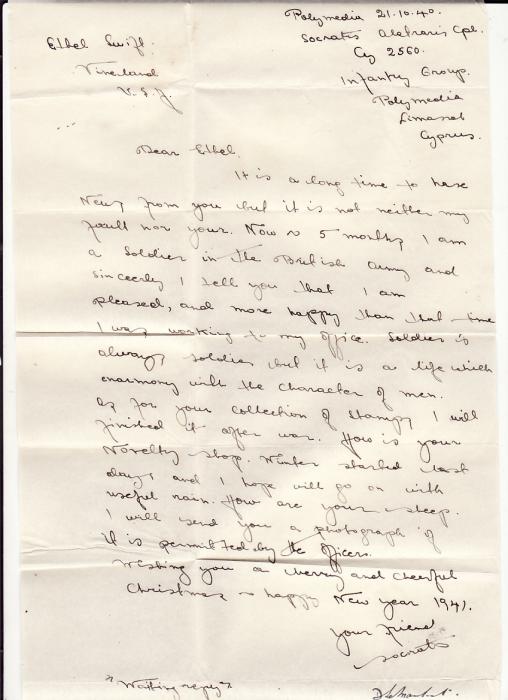 Polymedia 21.10.40.
Socratis Alefraris Cpl.
Cy 2560.
Infantry Group.
Polymedia
Limassol
Cyprus.
Ethel Swift.
Vineland
Dear Ethel.
It is a long time to have
News from you but it is not neither my
fault nor your. Now is 5 months I am
a Soldier in the British Army and
sincerely I tell you that I am
pleased, and more happy than that time
I was working to my office. Soldier is
always soldier but it is a life which
enarmony with the character of men.
As for your collection of Stamps I will
finished it after war. How is your
Novelty shop. Winter started last
days and I hope will go on with
useful rain. How are your sheep.
I will send you a photograph if
it is permitted by the officers.
Wishing you a merry and cheerful
Christmas & happy New year 1941.
your friend
Socratis
"Waiting reply"